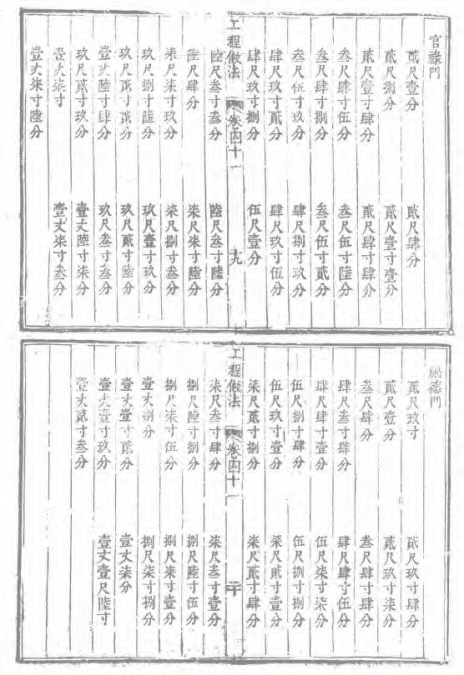 官祿門
貳尺壹分 貳尺肆分
貳尺捌分 貳尺壹寸壹分
貳尺壹寸肆分 貳尺肆寸肆分
叁尺肆寸伍分 叁尺伍寸陸分
叁尺肆寸捌分 叁尺伍寸貳分
叁尺伍寸玖分 肆尺捌寸玖分
肆尺玖寸貳分 肆尺玖寸伍分
肆尺玖寸捌分 伍尺壹分
工程做法 卷四十一 十九
陸尺叁寸叁分 陸尺叁寸陸分
陸尺肆分 柒尺柒寸陸分
柒尺柒寸玖分 柒尺捌寸叁分
玖尺捌寸陸分 玖尺壹寸玖分
玖尺貳寸貳分 玖尺貳寸陸分
壹丈陸寸肆分 玖尺叁寸叁分
玖尺貳寸玖分 壹丈陸寸柒分
壹丈柒寸 壹丈柒寸叁分
壹丈柒寸陸分
福德門
貳尺玖寸 貳尺玖寸肆分
貳尺壹分 貳尺玖寸柒分
叁尺肆分 叁尺肆寸肆分
肆尺叁寸肆分 肆尺肆寸伍分
肆尺肆寸壹分 伍尺柒寸柒分
伍尺捌寸肆分 伍尺捌寸捌分
伍尺玖寸壹分 柒尺貳寸壹分
柒尺貳寸捌分 柒尺貳寸肆分
工程做法 卷四十一 二十
柒尺叁寸肆分 柒尺叁寸壹分
捌尺陸寸捌分 捌尺陸寸伍分
捌尺柒寸伍分 捌尺柒寸壹分
壹丈捌分 捌尺柒寸捌分
壹丈壹寸貳分 壹丈柒分
壹丈壹寸玖分 壹丈壹尺陸寸
壹丈貳寸叁分